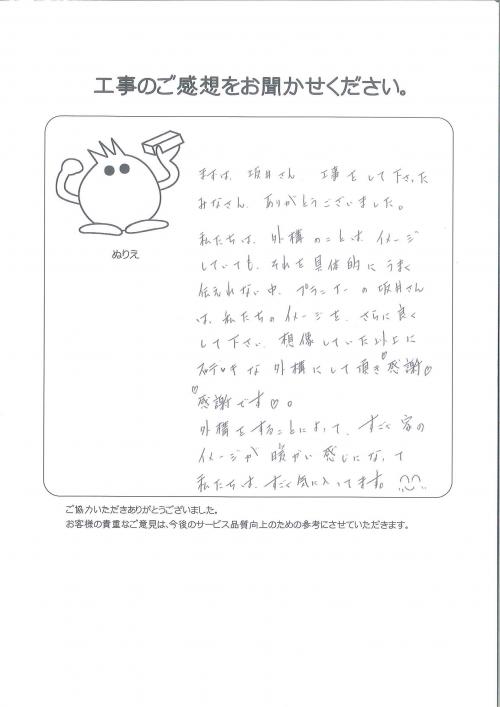 工事のご感想をお聞かせください。
ぬりえ
まずは、坂井さん、工事をして下さった
みなさん、ありがとうございました。
私たちは、外構のことは、イメージ
していても、それを具体的にうまく
伝えれない中、プランナーの坂井さん
は、私たちのイメージを、さらに良く
して下さい、想像していた以上に
ステッキな外構にして頂き感謝♡
感謝です♡。
外構をすることによって、すごく家の
イメージが暖かい感じになって
私たちは、すごく気に入ってます。
ご協力いただきありがとうございました。
お客様の貴重なご意見は、今後のサービス品質向上のための参考にさせていただきます。